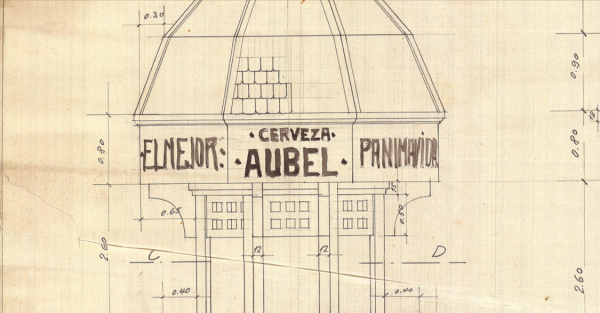 0.30
0.90
· CERVEZA ·
ELMEJOR: · AUBEL · PANIMAVIDA
0.80
0.80
15
0.65
0.50
12
12
C.
D
2.60
2.60
0.40
0.40